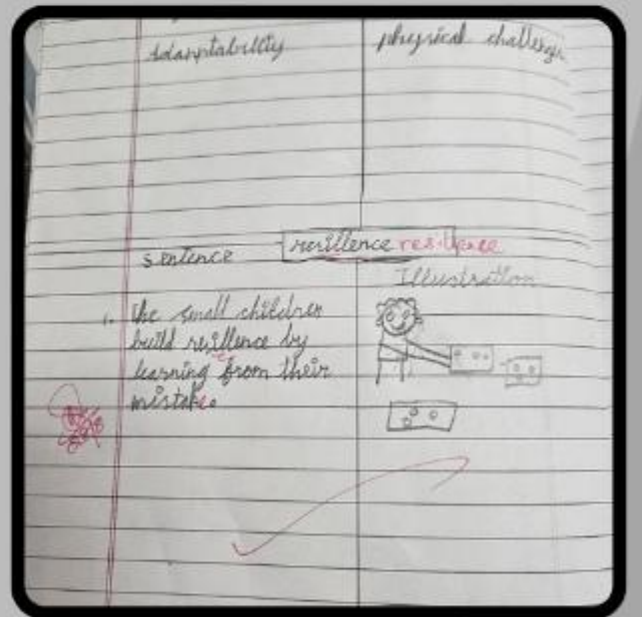 adaptability
physical challenge
resillence resilience
sentence
Illustration
1. the small children
build resillence by
learning from their
mistake.